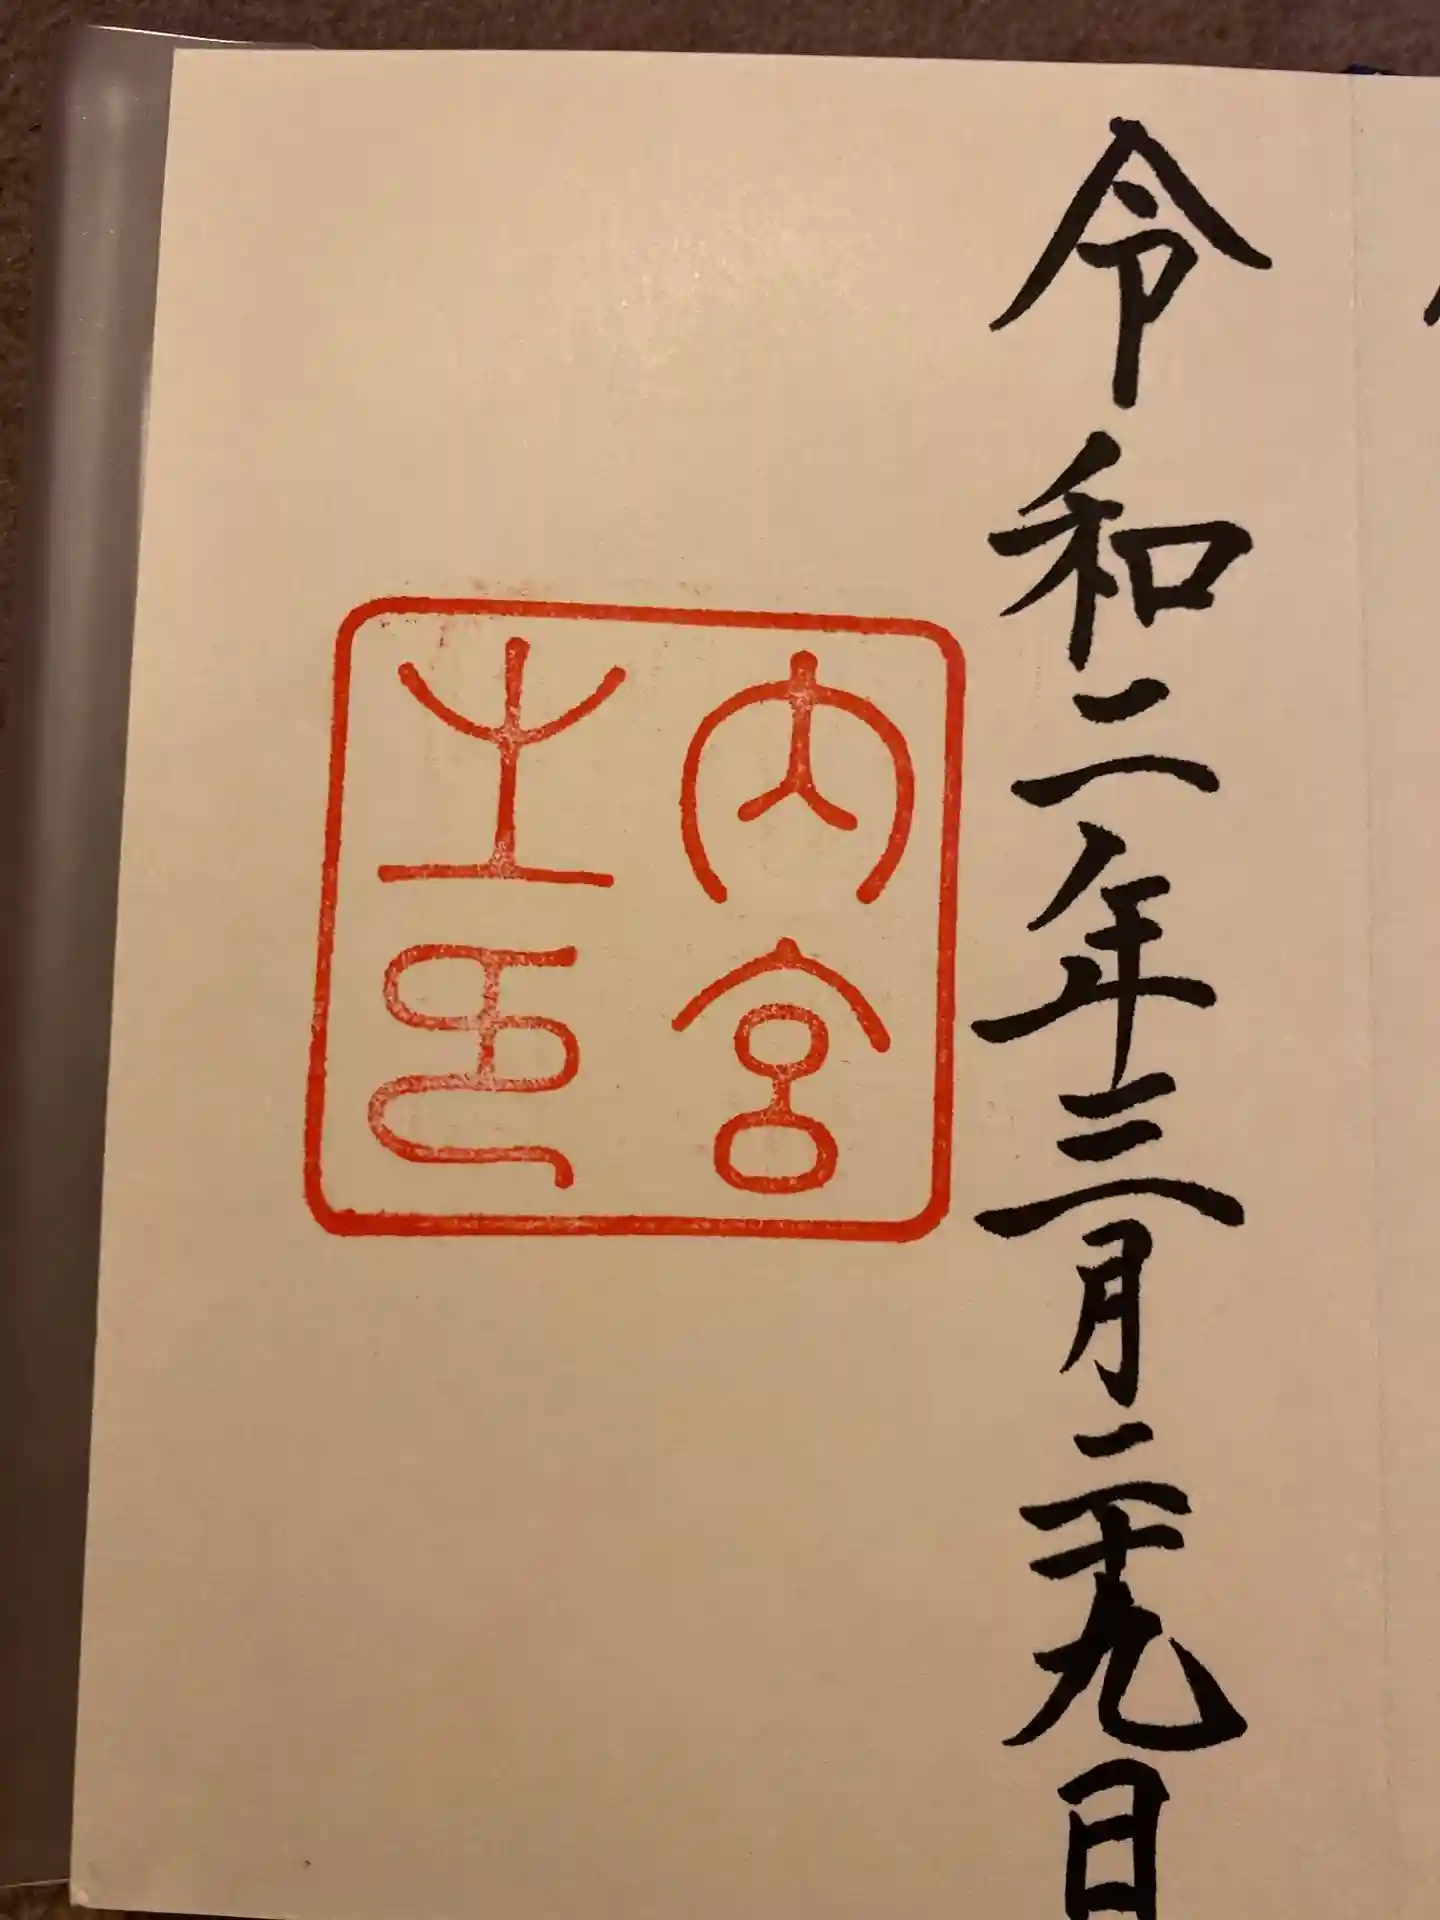 令和二年三月二十九日
内宮
之印